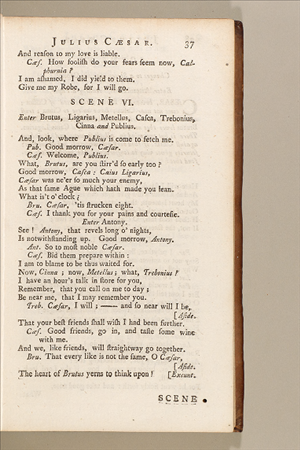 JULIUS CÆSAR. 37
And reaſon to my love is liable.
Cæſ. How fooliſh do your fears ſeem now, Cal-
phurnia?
I am aſhamed, I did yield to them.
Give me my Robe, for I will go.
SCENE VI.
Enter Brutus, Ligarius, Metellus, Caſca, Trebonius,
Cinna and Publius.
And, look, where Publius is come to fetch me.
Pub. Good morrow, Cæſar.
Cæſ. Welcome, Publius.
What, Brutus, are you ſtirr'd ſo early too?
Good morrow, Caſca: Caius Ligarius,
Cæſar was ne'er ſo much your enemy,
As that ſame Ague which hath made you lean.
What is't o'clock?
Bru. Cæſar, 'tis ſtrucken eight.
Cæſ. I thank you for your pains and courteſie.
Enter Antony.
See! Antony, that revels long o' nights,
Is notwithſtanding up. Good morrow, Antony.
Ant. So to moſt noble Cæſar.
Cæſ. Bid them prepare within:
I am to blame to be thus waited for.
Now, Cinna; now, Metellus; what, Trebonius!
I have an hour's talk in ſtore for you,
Remember, that you call on me to day;
Be near me, that I may remember you.
Treb. Cæſar, I will; —— and ſo near will I be,
[Aſide.
That your beſt friends ſhall wiſh I had been further.
Cæſ. Good friends, go in, and taſte ſome wine
with me.
And we, like friends, will ſtraightway go together.
Bru. That every like is not the ſame, O Cæſar,
[Aſide.
The heart of Brutus yerns to think upon! [Exeunt.
SCENE